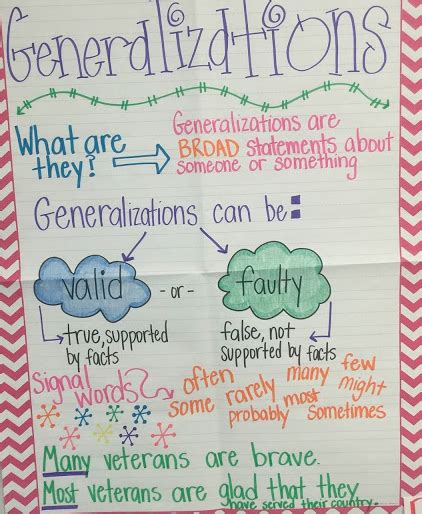 Generalizations
What are
they?
Generalizations are
BROAD statements about
someone or something
Generalizations can be:
valid
- or -
faulty
true, supported
by facts
false, not
supported by facts
Signal
Words
often many few
some rarely most might
probably sometimes
Many veterans are brave.
Most veterans are glad that they
have served their country.